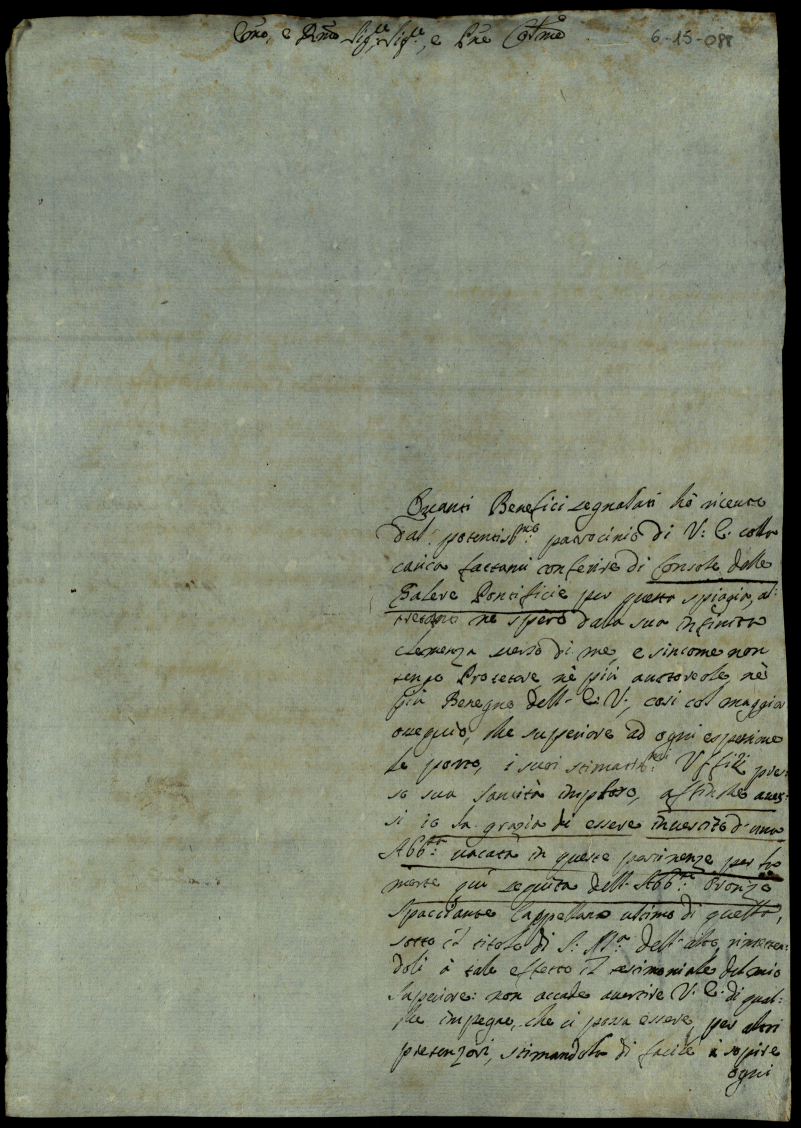 Emo, e Rmo Sigre, Sigre, e Pne Colmo
6-15-088
Quanti Benefici segnalati hò ricevuto
dal potentismo: patrocinio di V: E: colla
carica fattami conferire di Console delle
Galere Pontificie per questa spiaggia, al:
tretanti ne spero dalla sua infinita
clemenza verso di me, e siccome non
tengo Protetore nè più auttorevole, nè
più Benegno dell'E: V:, così col maggior
ossequio, che superiore ad ogni espressione
le porto, i suoi stimatissmi: Uffizi pres:
so sua Santità imploro, affinche aves:
si io la grazia di essere investito d'una
Abbia: vacata in queste pertinenze per la
morte quì seguita dell'Abbte: Oronzo
Spacciante Cappellano ultimo di quella,
sotto il titolo di S: Ma dell'alto, rimetten:
doli à tale effetto il testimoniale del mio
Superiore: non accade avertire V: E: di qual:
che impegno, che ci possa essere, per altri
pretenzori, stimandolo di facile à sopire
ogni